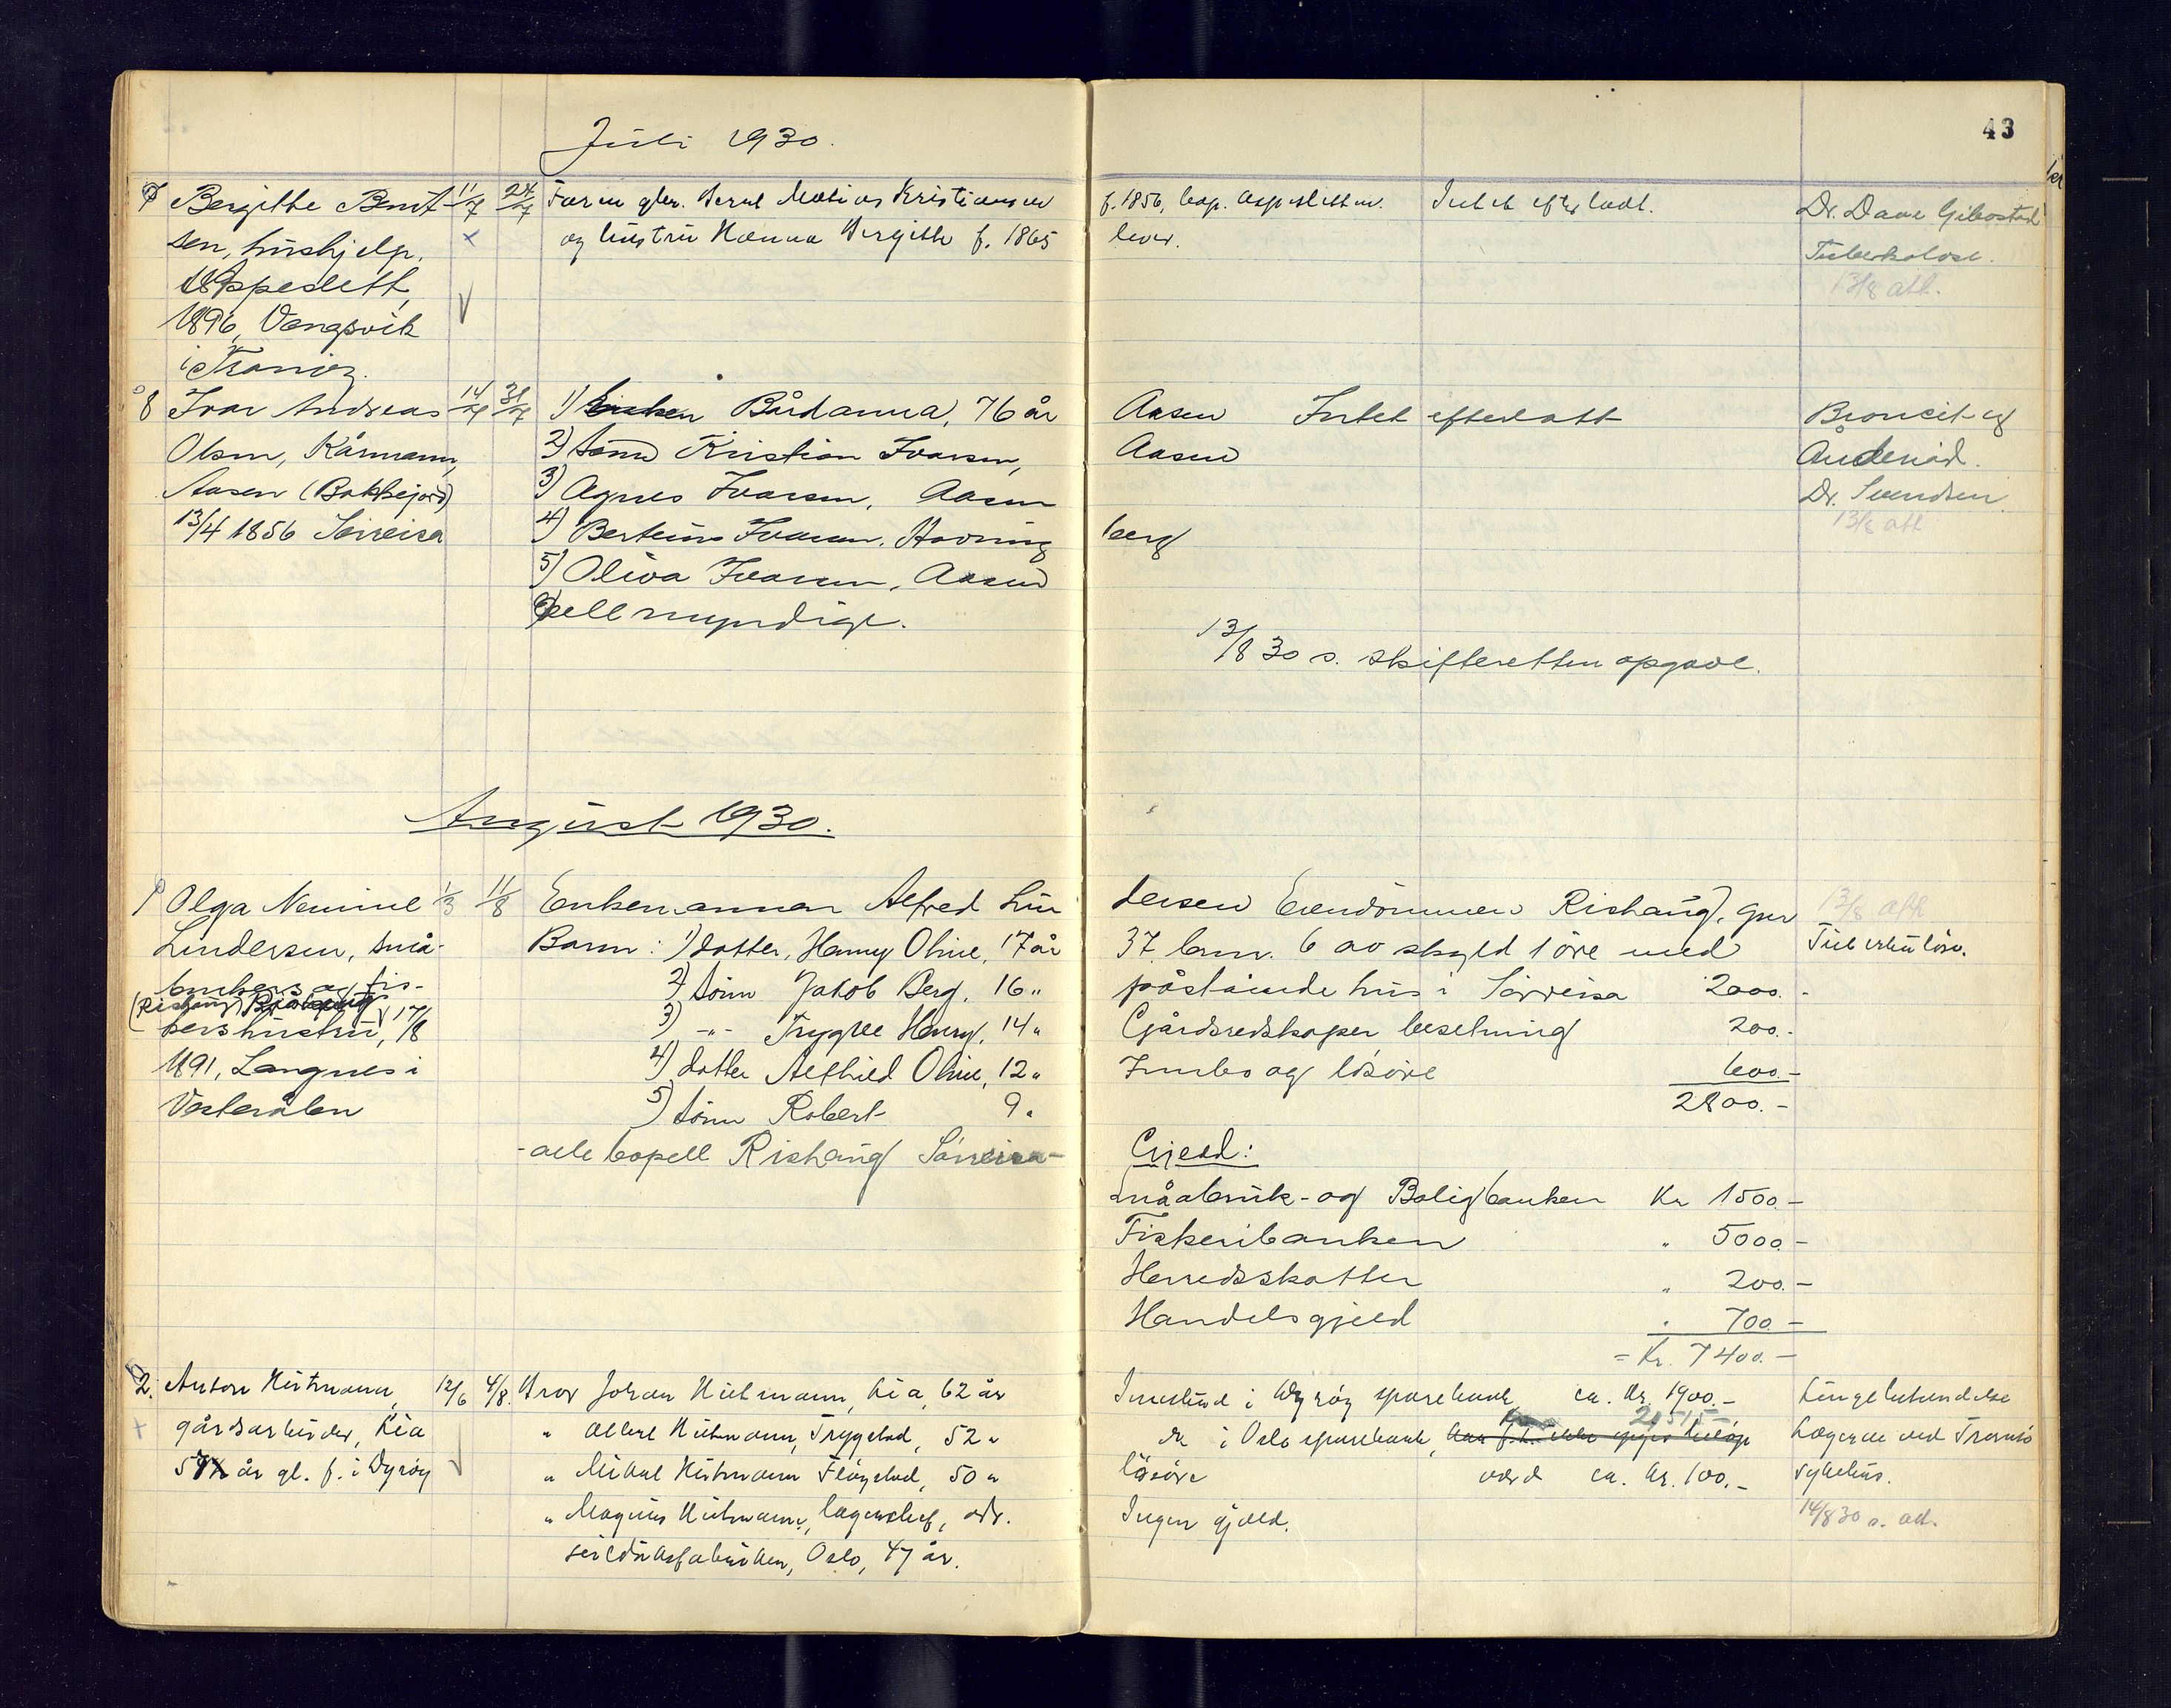 43
Juli 1930.
7 Bergitte Bernt- 11/7 24/7 Faren gbr. Bernt Matias Kristiansen f. 1856, Aspesletten. Intet efterladt. Dr. Daae Gibostad
sen, hushjelp, og hustru Hanna Bergitte f. 1865 lever. Tuberkolose.
Aspeslett, 13/8 att.
1896, Vangsvik
i Tranöy.
8 Ivar Andreas 14/7 31/7 1) Enken Bårdanna, 76 år Aasen Intet efterlatt Broncit og
Olsen, Kårmann, 2) Sönn Kristian Ivarsen, Aasen Åndenöd.
Aasen (Bakkejord) 3) Agnes Ivarsen, Aasen Dr. Svendsen
13/4 1856 Sörreisa 4) Berteus Ivarsen, Havning berg 13/8 att
5) Oliva Ivarsen, Aasen
alle myndige.
13/8 30 s. skifteretten opgave.
August 1930.
1 Olga Nemine 1/3 11/8 Enkemannen Alfred Lin dersen Eiendommen Rishaug, gnr 13/8 att
Lindersen, små- Barn: 1) datter, Hanny Oline, 17 år 37 bnr. 6 av skyld 1 öre med Tuberkulöse.
brukers og fis- 2) sönn Jakob Berg, 16 " påstående hus i Sörreisa 2000.-
(Rishaug)
kershustru, 17/8 3) -"- Trygve Henry, 14 " Gårdsredskaper besetning 200.-
1891, Langnes i 4) datter Alfhild Oline, 12 " Innbo og lösöre 600.-
Vesterålen 5) sönn Robert 9 " 2800.-
- alle bopell Rishaug Sörreisa - Gjeld:
Småbruk- og Boligbanken Kr 1500-
Fiskeribanken " 5000-
Herredsskatter " 200.-
Handelsgjeld " 700-
= Kr. 7400.-
2. Anton Hutmann, 12/6 4/8. Bror Johan Hutmann, Lia, 62 år Innestående i Dyröy sparebank ca. kr. 1900.- Lungebetendelse
gårdsarbeider, Lia " Albert Hutmann, Trygstad, 52 " do i Oslo sparebank, Lægerne ved Tromsö
57 år gl. f. i Dyröy " Mikal Hutmann Flöystad, 50 " lösöre værd ca. kr. 100.- sykehus.
" Magnus Hutmann, lagerchef, adr. Ingen gjæld. 14/8 30 s. att.
Oslo, 47 år.